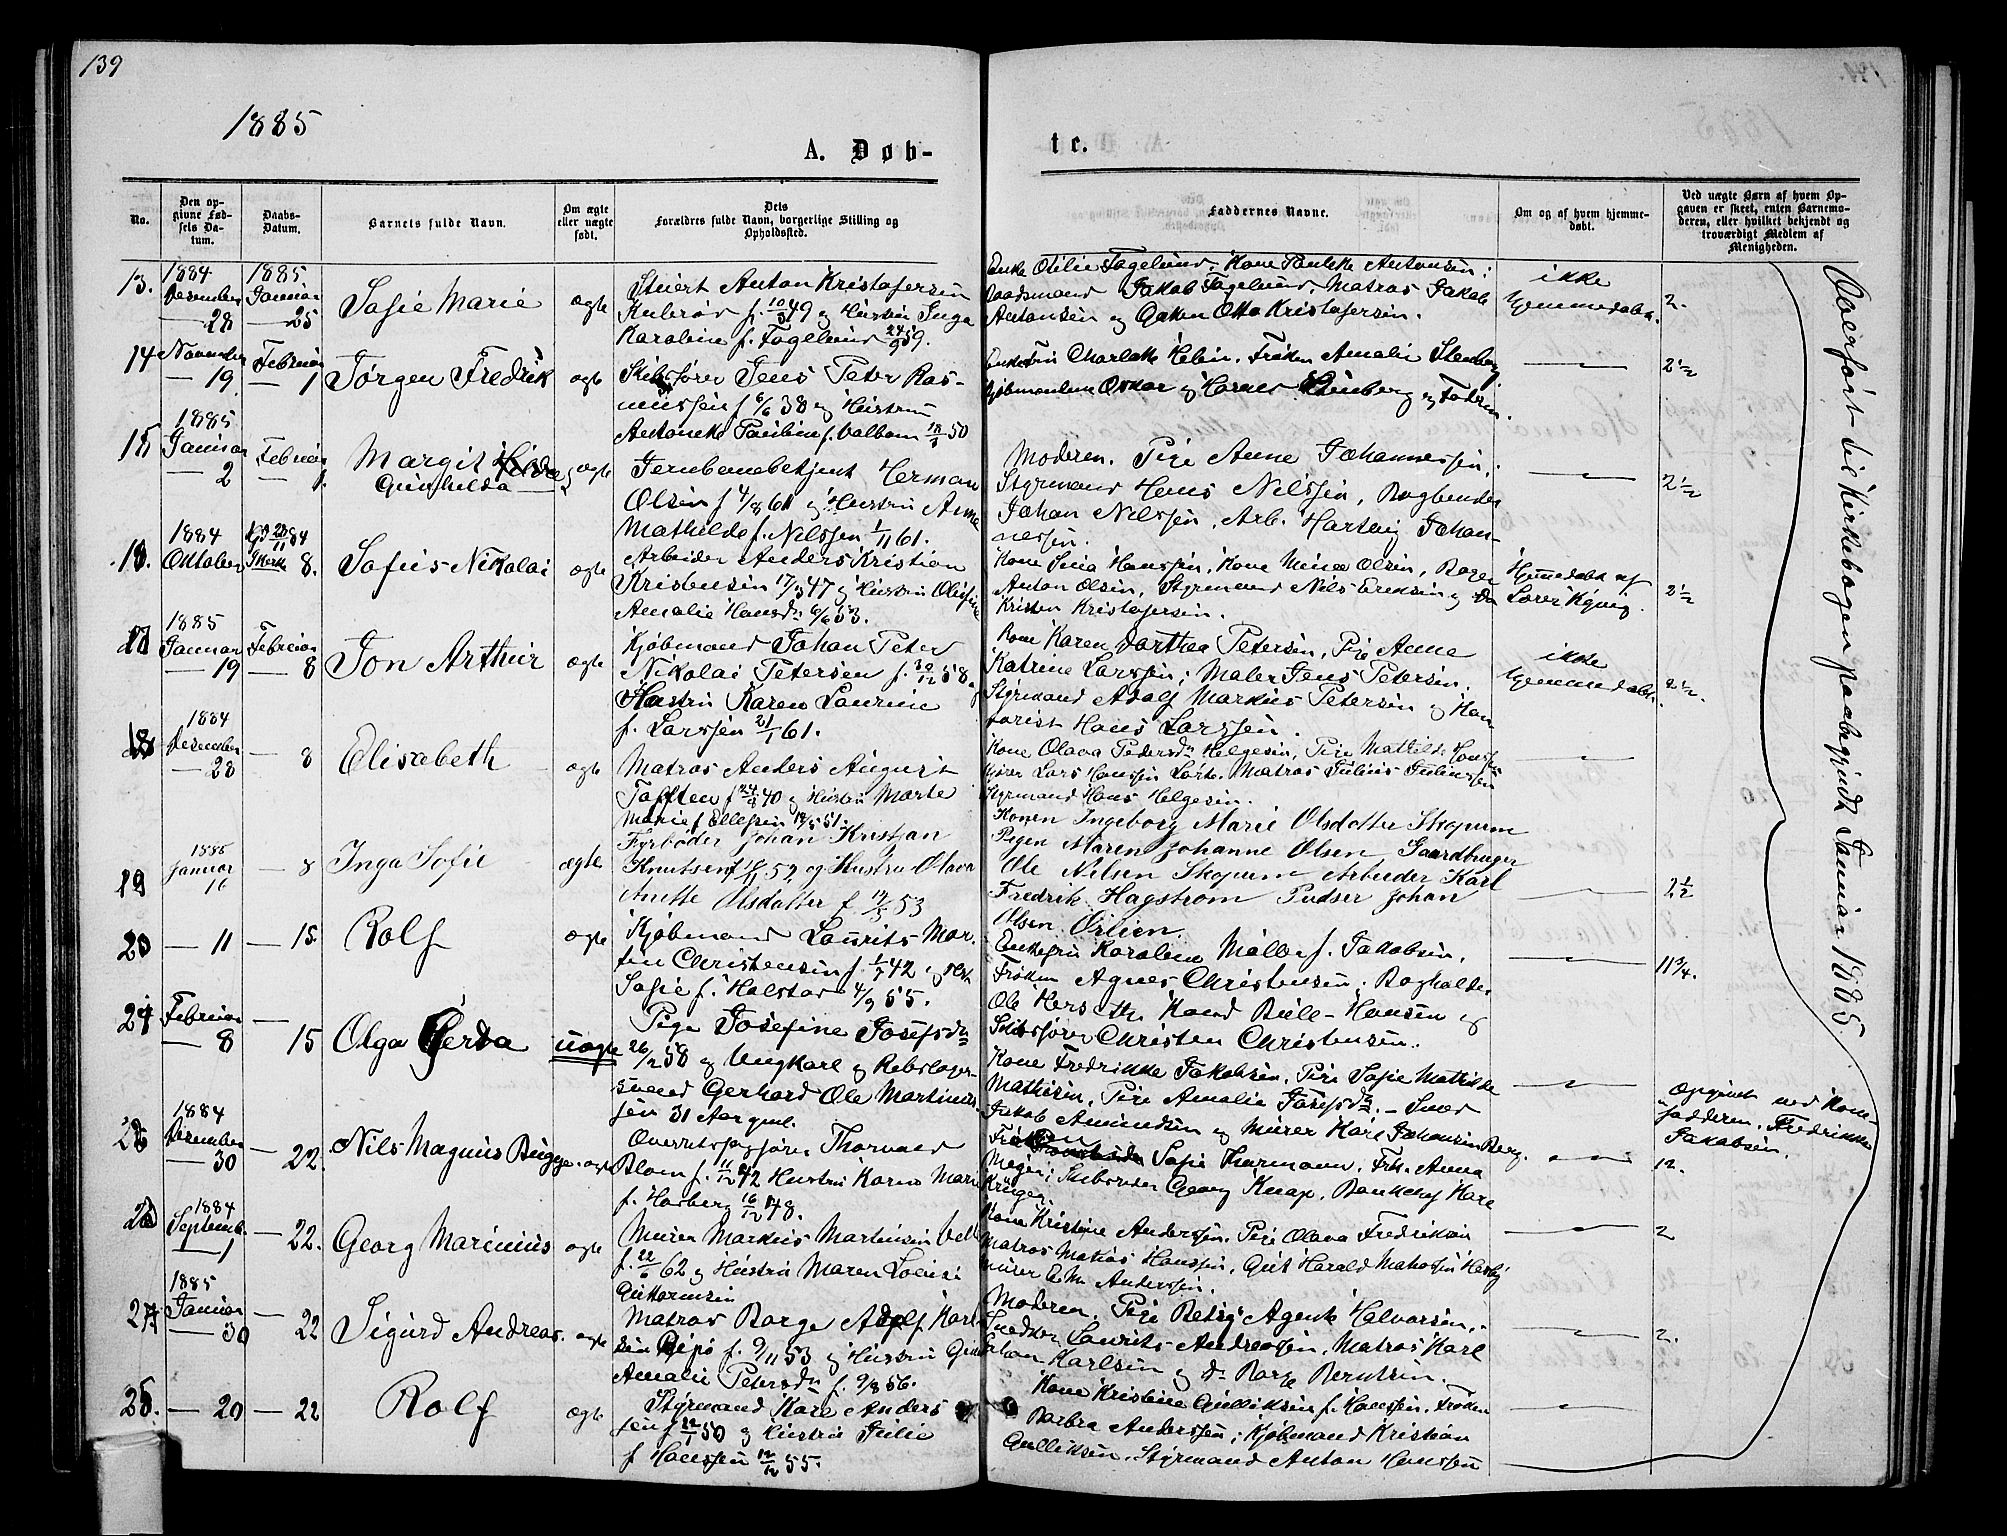 139
1885
A. Døb-
tc.
No.
Den opgivne Fødsels Datum.
Daabs-Datum.
Barnets fulde Navn.
Om ægte eller uægte født.
Dets Forældres fulde Navn, borgerlige Stilling og Opholdssted.
Faddernes Navne.
Om og af hvem hjemmedøbt.
Ved uægte Børn af hvem Opgaven er skeet, enten Barnemoderen, eller hvilket bekjendt og troværdigt Medlem af Menigheden.
13. 1884 Desember 28 1885 Januar 25 Sofie Marie ægte
Stuert Anton Kristofersen
f. 10/3 49 og Hustru Inga
Karoline f. Fagelund 24/9 59.
Enke Otilie Fagelund, Kone Antonsen;
Baadsmand Jakob Fagelund, Matros Jakob
Antonsen og Otto Kristofersen.
ikke
hjemmedøbt.
2.
14 November 19 Februar 1 Jørgen Fredrik ægte
Skibsfører Jens Peter Ras-
mussen f 6/6 38 og Hustru
Antonette Pauline f. 50
Charlotte Frøken Amalie Stenberg
Kjøbmændene Oskar og Stenberg og Faderen.
2 1/2
15 1885 Januar 2 Februar 1 Margit Gunhilda ægte
Jernbanebetjent Herman
Olsen f 4/8 61 og Hustru Anne
Mathilde f. Nilssen 1/11 61.
Moderen, Pige Anne Johannessen,
Styrmand Hans Nilssen, Bogbinder
Johan Nilssen, Arb. Hartvig Johan-
nessen.
2 1/2
16. 1884 Oktober 84 8. Sofus Nikolai ægte
Arbeider Anders Kristian
Kristensen 17/3 47 og Hustru
Amalie Hansdr 6/6 53.
Kone Sina Hanssen, Kone Mina Olsen,
Anton Olsen, Styrmand Nils Eriksen og
Kristen Kristofersen.
Hjemmedøbt af
2 1/2
17 1885 Januar 19 Februar 8 Jon Arthur ægte
Kjøbmand Johan Peter
Nikolai Petersen f. 30/12 58 og
Hustru Karen Laurine
f. Larssen 21/1 61.
Kone Karen Dorthea Petersen, Pige Anne
Katrine Larssen; Maler Jens Petersen,
Styrmand Adolf Markus Petersen og Kon-
torist Hans Larssen.
ikke
hjemmedøbt.
2 1/2.
18 1884 Desember 28 8 Elisabeth ægte
Matros Anders August
Tofften f 24/9 40 og Hustru Marte
Marie f Ellefsen 51.
Kone Olava Pedersdr Helgesen, Pige Mathilde Hanssen
Lars Hanssen Matros Julius
Styrmand Hans Helgesen.
19 1885 Januar 16 8 Inga Sofie ægte
Fyrbøder Johan Kristjan
Knutsen f 52 og Hustru Olava
Anette Olsdatter f 53
Konen Ingeborg Marie Olsdatter Skopum
Pigen Maren Johanne Olsen Gaardbruger
Ole Nilsen Skopum Arbeider Karl
Fredrik Hagstrøm Pudser Johan
Olsen Ørlien
2 1/2
20 11 15. Rolf ægte
Kjøbmand Laurits Mar-
tin Christensen f. 1/7 42 og
Sofie f. Halstad 4/9 55.
Enkefru Karoline Møller f. Jakobsen,
Frøken Agnes Christensen; Bogholder
Ole Hersleth, Kand. Bull-Hansen og
Skibsfører Christen Christensen.
11 3/4.
21 Februar 8 15 Olga Gerda uægte
Pige Josefine Josefsdr
26/2 58 og Ungkarl og Rebslager-
svend Gerhard Ole Martinius-
sen 31 Aar gml.
Kone Fredrikke Jakobsen, Pige Sofie Mathilde
Mathisen, Pige Amalie Josefsdr. - Smed
Jakob Amundsen og Murer Karl Johansen Berg.
Opgivet ved Kone
Fadderen, Fredrikke
Jakobsen.
22 1884 Desember 30 22. Nils Magnus Bugge ægte
Overretssagfører Thorvald
Blom f. 11/12 42 Hustru Karen Marie
f. Horberg 16/12 48.
Frøken Sofie Thurmann, Frk. Anna
Meyer; Skibsreder Georg Knap, Bankchef Karl
Krüger.
12.
23 1884 Septemb. 1 22. Georg Marinius ægte
Murer Markus Martinsen
f. 22/6 62 og Hustru Maren Lovise
Guttormsen
Kone Kristine Anderssen, Pige Olava Fredriksen
Matros Matias Hanssen, Gut Harald
Murer E. M. Anderssen.
2
24 1885 Januar 30 22 Sigurd Andreas. ægte
Matros Borge Adolf Karl-
sen f. 9/11 53 og Hustru
Amalie Petersdr f. 9/8 56.
Moderen, Pige Betsy Agente Halvorsen,
Snedker Laurits Andreassen, Matros Karl
Johan Karlsen og do Borge Berntsen.
2.
25. 20 22 Rolf ægte
Styrmand Karl Anders-
sen f 50 og Hustru Julie
f Hanssen 12/12 55.
Kone Kristine Gulliksen f. Hanssen, Frøken
Barbra Anderssen; Kjøbmand Kristian
Gulliksen, Styrmand Anton Hanssen
Overført til Kirkebogen paabegyndt Januar 1885.